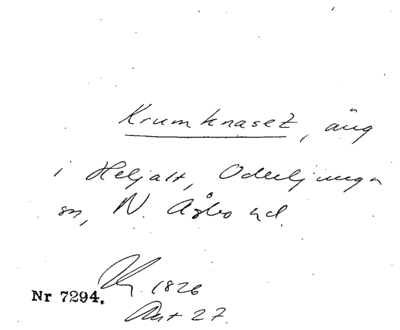 Krumknaset, äng
i Heljalt, Oderljunga
sn, N. Åsbo hd.
1826
Nr 7294.
Akt 27